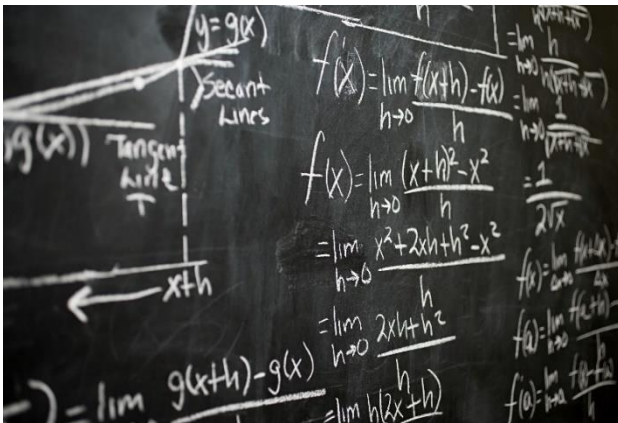 y=g(x)
Secant
Lines
g(x))
Tangent
Line
T
x+h
= lim g(x+h)-g(x)
f'(x)=lim f(x+h)-f(x)
h→0 h
f'(x)=lim (x+h)²-x²
h→0 h
=lim x²+2xh+h²-x²
h→0 h
=lim 2xh+h²
h→0 h
=lim h(2x+h)
=lim h
h→0
=lim 1
h→0
=1
2√x
f'(x)=lim
f'(a)=lim f(a+h)-
h
f'(a)=lim